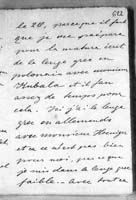 612
le 20, parce que il faut
que je me prépare
pour la mature écrit
de la langue grec en
polonais avec monsieur
Kubala et il faut
assez de temps pour
cela. Ici j'ai le langue
grec en allemands
avec monsieur
et ce n'est pas bien
pour moi, parce que
je suis dans le langue
faible. avec